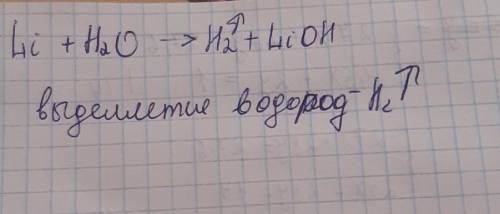 Li + H₂O —> H₂↑ + LiOH
выделлетие водород - H₂↑